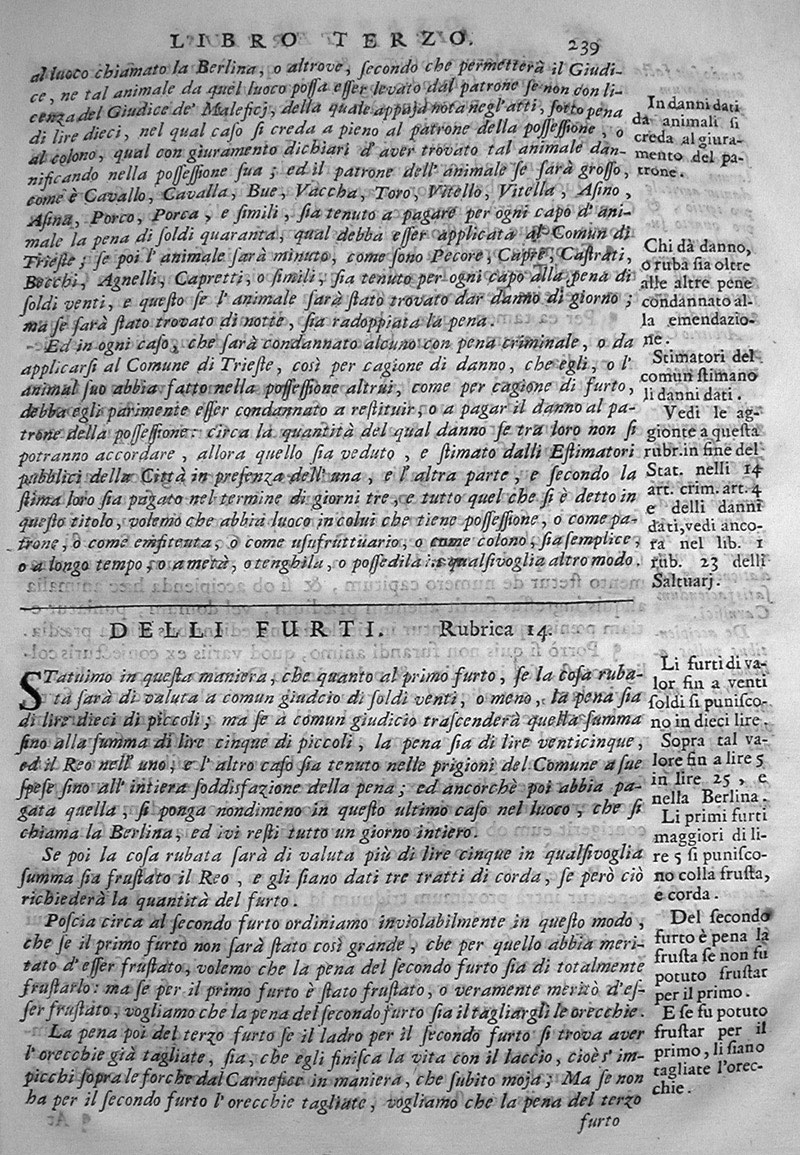 LIBRO TERZO.
239
al luoco chiamato la Berlina, o altrove, ſecondo che permetterà il Giudi-
ce, ne tal animale da quel luoco poſſa eſſer levato dal patrone ſe non con li-
cenza del Giudice de' Maleficj, della quale appaja nota negl'atti, ſotto pena
di lire dieci, nel qual caſo ſi creda a pieno al patrone della poſſeſſione, o
al colono, qual con giuramento dichiari d'aver trovato tal animale dan-
nificando nella poſſeſſione ſua; ed il patrone dell'animale ſe ſarà groſſo,
come è Cavallo, Cavalla, Bue, Vaccha, Toro, Vitello, Vitella, Aſino,
Aſina, Porco, Porca, e ſimili, ſia tenuto a pagare per ogni capo d'ani-
male la pena di ſoldi quaranta, qual debba eſſer applicata al Comun di
Trieſte; ſe poi l'animale ſarà minuto, come ſono Pecore, Capre, Caſtrati,
Becchi, Agnelli, Capretti, o ſimili, ſia tenuto per ogni capo alla pena di
ſoldi venti, e queſto ſe l'animale ſarà ſtato trovato dar danno di giorno;
ma ſe ſarà ſtato trovato di notte, ſia radoppiata la pena.
Ed in ogni caſo, che ſarà condannato alcuno con pena criminale, o da
applicarſi al Comune di Trieſte, così per cagione di danno, che egli, o l'
animal ſuo abbia fatto nella poſſeſſione altrui, come per cagione di furto,
debba egli parimente eſſer condannato a reſtituir, o a pagar il danno al pa-
trone della poſſeſſione: circa la quantità del qual danno ſe tra loro non ſi
potranno accordare, allora quello ſia veduto, e ſtimato dalli Eſtimatori
pubblici della Città in preſenza dell'una, e l'altra parte, e ſecondo la
ſtima loro ſia pagato nel termine di giorni tre, e tutto quel che ſi è detto in
queſto titolo, volemo che abbia luoco in colui che tiene poſſeſſione, o come pa-
trone, o come emfiteuta, o come uſufruttuario, o come colono, ſia ſemplice,
o a longo tempo, o a metà, o tenghila, o poſſedila in qualſivoglia altro modo.
In danni dati
da animali ſi
creda al giura-
mento del pa-
trone.
Chi dà danno,
o ruba ſia oltre
alle altre pene
condannato al-
la emendazio-
ne.
Stimatori del
comun ſtimano
li danni dati.
Vedi le ag-
gionte a queſta
rubr. in fine del
Stat. nelli 14
art. crim. art. 4
e delli danni
dati, vedi anco-
ra nel lib. 1
rub. 23 delli
Saltuarj.
DELLI FURTI. Rubrica 14.
STatuimo in queſta maniera, che quanto al primo furto, ſe la coſa ruba-
ta ſarà di valuta a comun giudcio di ſoldi venti, o meno, la pena ſia
di lire dieci di piccoli; ma ſe a comun giudicio traſcenderà quella ſumma
fino alla ſumma di lire cinque di piccoli, la pena ſia di lire venticinque,
ed il Reo nell'uno, e l'altro caſo ſia tenuto nelle prigioni del Comune a ſue
ſpeſe fino all'intiera ſoddisfazione della pena; ed ancorchè poi abbia pa-
gata quella, ſi ponga nondimeno in queſto ultimo caſo nel luoco, che ſi
chiama la Berlina, ed ivi reſti tutto un giorno intiero.
Se poi la coſa rubata ſarà di valuta più di lire cinque in qualſivoglia
ſumma ſia fruſtato il Reo, e gli ſiano dati tre tratti di corda, ſe però ciò
richiederà la quantità del furto.
Poſcia circa al ſecondo furto ordiniamo inviolabilmente in queſto modo,
che ſe il primo furto non ſarà ſtato così grande, che per quello abbia meri-
tato d'eſſer fruſtato, volemo che la pena del ſecondo furto ſia di totalmente
fruſtarlo: ma ſe per il primo furto è ſtato fruſtato, o veramente meritò d'eſ-
ſer fruſtato, vogliamo che la pena del ſecondo furto ſia il tagliargli le orecchie.
La pena poi del terzo furto ſe il ladro per il ſecondo furto ſi trova aver
l'orecchie già tagliate, ſia, che egli finiſca la vita con il laccio, cioè s'im-
picchi ſopra le forche dal Carnefice in maniera, che ſubito moja; Ma ſe non
ha per il ſecondo furto l'orecchie tagliate, vogliamo che la pena del terzo
furto
Li furti di va-
lor fin a venti
ſoldi ſi puniſco-
no in dieci lire.
Sopra tal va-
lore fin a lire 5
in lire 25, e
nella Berlina.
Li primi furti
maggiori di li-
re 5 ſi puniſco-
no colla fruſta,
e corda.
Del ſecondo
furto è pena la
fruſta ſe non fu
potuto fruſtar
per il primo.
E ſe fu potuto
fruſtar per il
primo, li ſiano
tagliate l'orec-
chie.